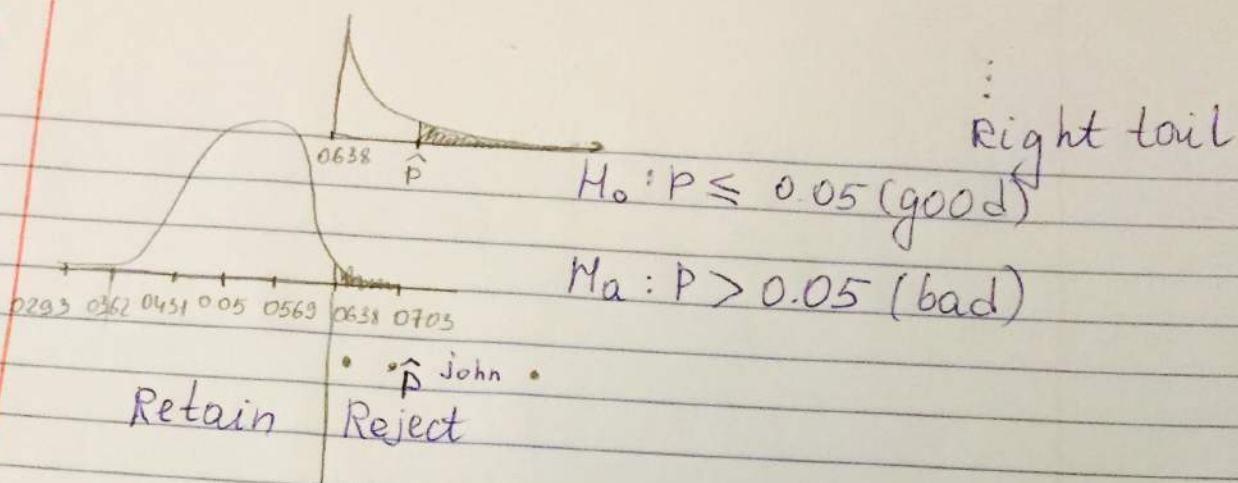 ⋮
Right tail
0638
p̂
H₀ : P ≤ 0.05 (good)
Ha : P > 0.05 (bad)
0293 0362 0431 005 0569 0638 0703
p̂ john
Retain Reject